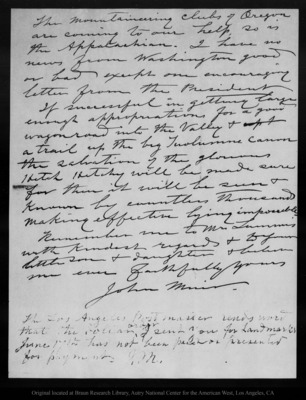 The Mountaineering Clubs of Oregon
are coming to our help so is
the Appalachian. I have no
news from Washington good
or bad except one encouraging
letter from the President
If successful in getting large
enough appropriations for a good
wagonroad into the Valley &
a trail up the big Tuolumne canon
the salvation of the glorious
Hetch Hetchy will be made sure
for then it will be seen &
known by countless thousands
making effective lying impossible
Remember me to Mr Lummis
with kindest regards & to
little son & daughter & believe
me ever faithfully yours
John Muir
The Los Angeles Postmaster sends word
that the Dollar order sent you for Landmarks
June has not been paid or presented
for payment. J.M.
Original located at Braun Research Library, Autry National Center for the American West, Los Angeles, CA